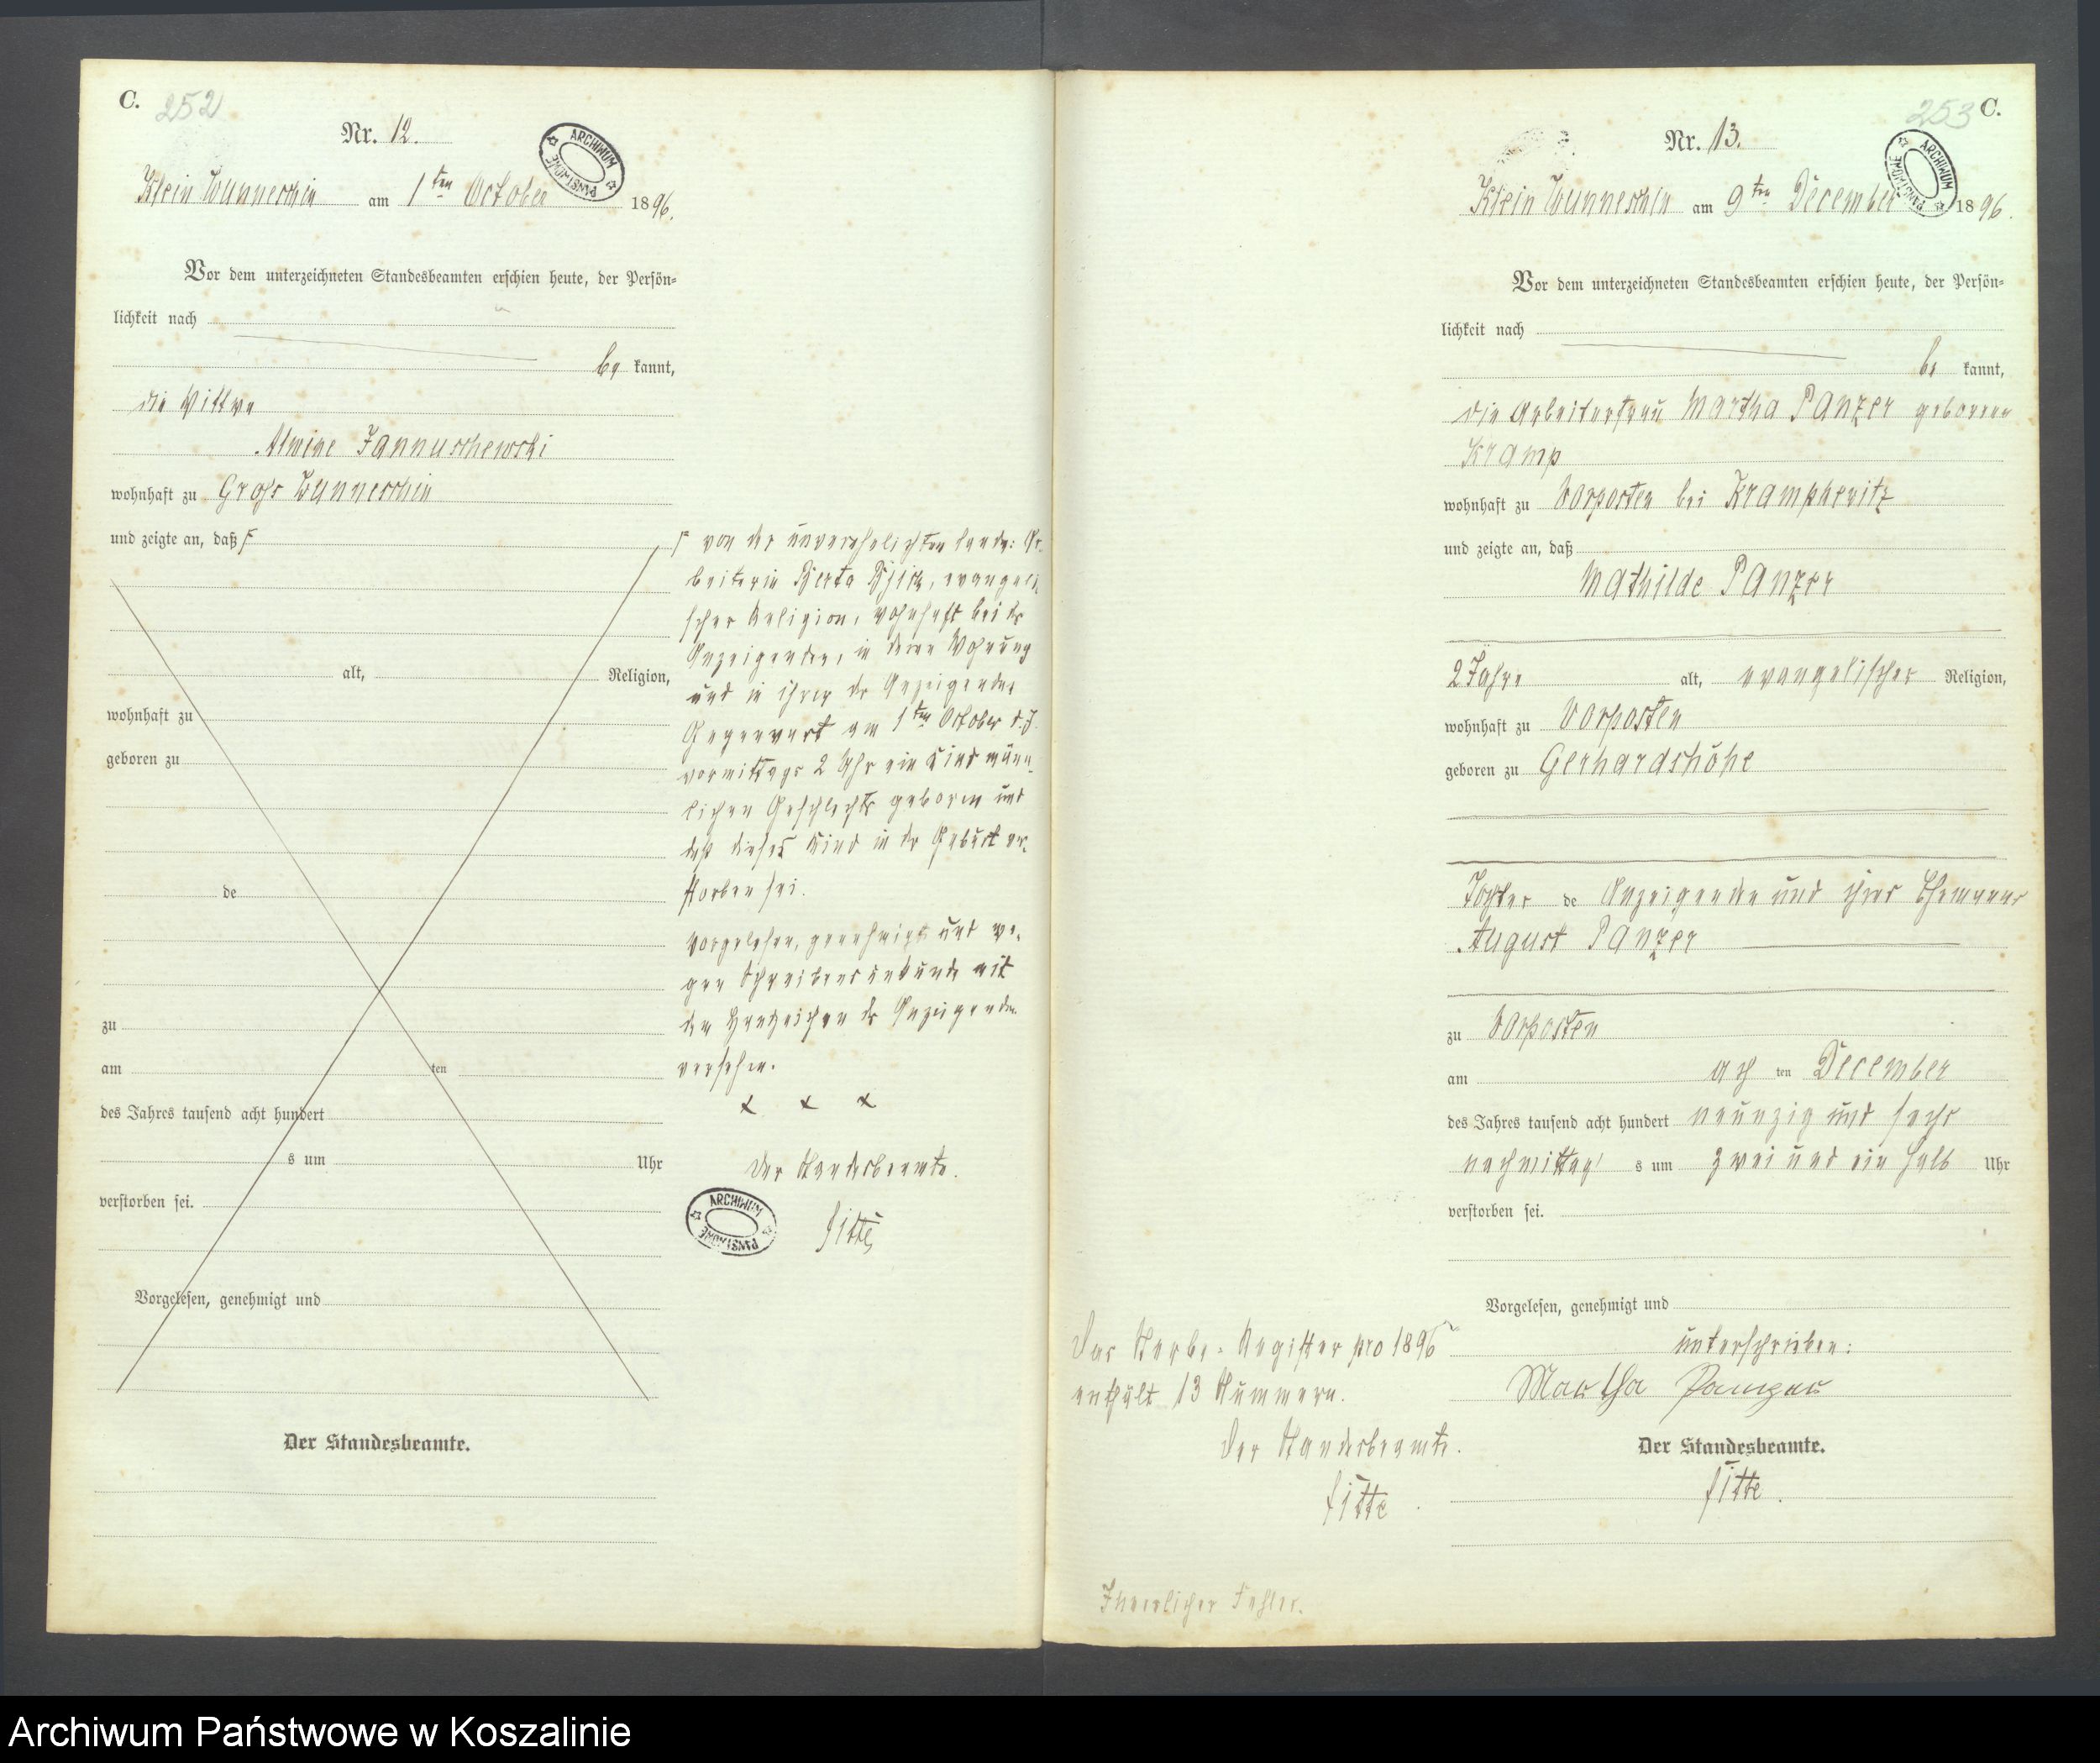 C. 252
Nr. 12.
Klein Wunneschin am 1ten October 1896.
Vor dem unterzeichneten Standesbeamten erschien heute, der Persön-
lichkeit nach
be kannt,
die Wittwe
Alwine Jannuschewski
wohnhaft zu Gross Wunneschin
und zeigte an, daß
alt, Religion,
wohnhaft zu
geboren zu
de
zu
am ten
des Jahres tausend acht hundert
s um Uhr
verstorben sei.
Vorgelesen, genehmigt und
Der Standesbeamte.
von der unverehelichten Ar-
beiterin Berta, evangeli-
scher Religion, wohnhaft bei der
Anzeigenden, in deren Wohnung
und in ihrer der Anzeigenden
Gegenwart am 1ten October d. J.
vormittags 2 Uhr ein Kind männ-
lichen Geschlechts geboren und
daß dieses Kind in der Geburt ver-
storben sei.
Vorgelesen, genehmigt und we-
gen Schreibensunkunde mit
dem Handzeichen der Anzeigenden
versehen.
x x x
Der Standesbeamte.
ARCHIWUM PAŃSTWOWE
C. 253
Nr. 13.
Klein Wunneschin am 9ten December 1896.
Vor dem unterzeichneten Standesbeamten erschien heute, der Persön-
lichkeit nach
be kannt,
die Arbeiterfrau Martha Panzer geborene
Kramp
wohnhaft zu Vorposten bei Krampkewitz
und zeigte an, daß
Mathilde Panzer
2 Jahre alt, evangelischer Religion,
wohnhaft zu Vorposten
geboren zu Gerhardshöhe
Tochter de Anzeigenden und ihres Ehemanns
August Panzer
zu Vorposten
am ach ten December
des Jahres tausend acht hundert neunzig und sechs
nachmittag s um zwei und ein halb Uhr
verstorben sei.
Vorgelesen, genehmigt und
unterschrieben:
Martha Panzer
Der Standesbeamte.
Das Sterbe-Register pro 1896
enthält 13 Nummern.
Der Standesbeamte.
ARCHIWUM PAŃSTWOWE
Archiwum Państwowe w Koszalinie